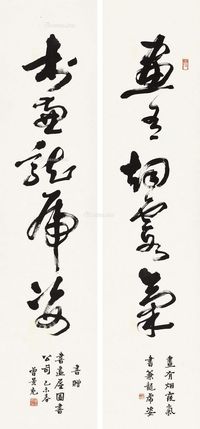 畫有烟霞氣
畫有烟霞氣
書兼龍虎姿
書兼龍虎姿
書贈
書畫屋圖書
公司 己未春
曾景充